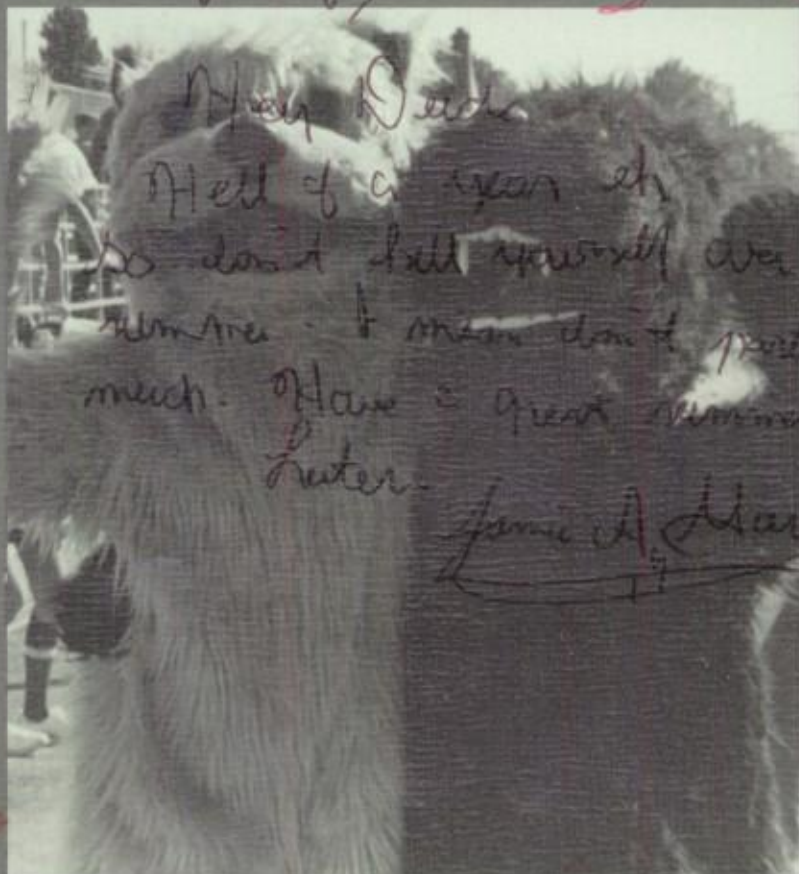 Hey Dude
Hell of a year eh
So don't kill yourself over
summer. I mean don't
much. Have a great summer
Later.
Jamie A.